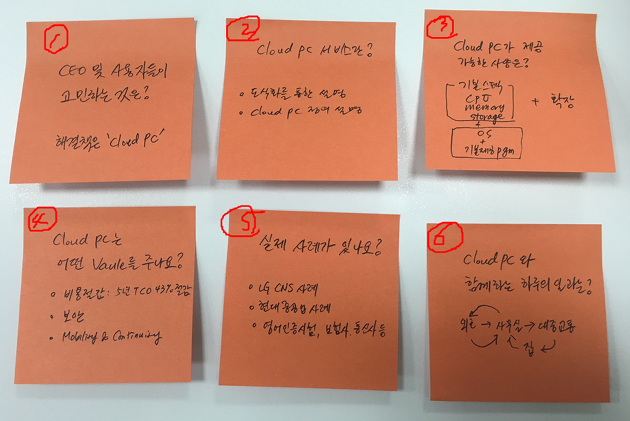 1
CEO 및 사용자들이
고민하는 것은?
해결책은 'Cloud PC'
2
Cloud PC 서비스란?
• 도식화를 통한 설명
• Cloud PC 정의 설명
3
Cloud PC가 제공
가능한 사양은?
기본스펙
CPU
memory
storage
+
OS
+
기본제공pgm
+ 확장
4
Cloud PC는
어떤 Vaule를 주나요?
• 비용절감: 5년 TCO 43% 절감
• 보안
• Mobility & Continuity
5
실제 사례가 있나요?
• LG CNS 사례
• 현대중공업 사례
• 영어인증시험, 보험사 통신사 등
6
Cloud PC와
함께하는 하루의 일과는?
외근 → 사무실 → 대중교통
집